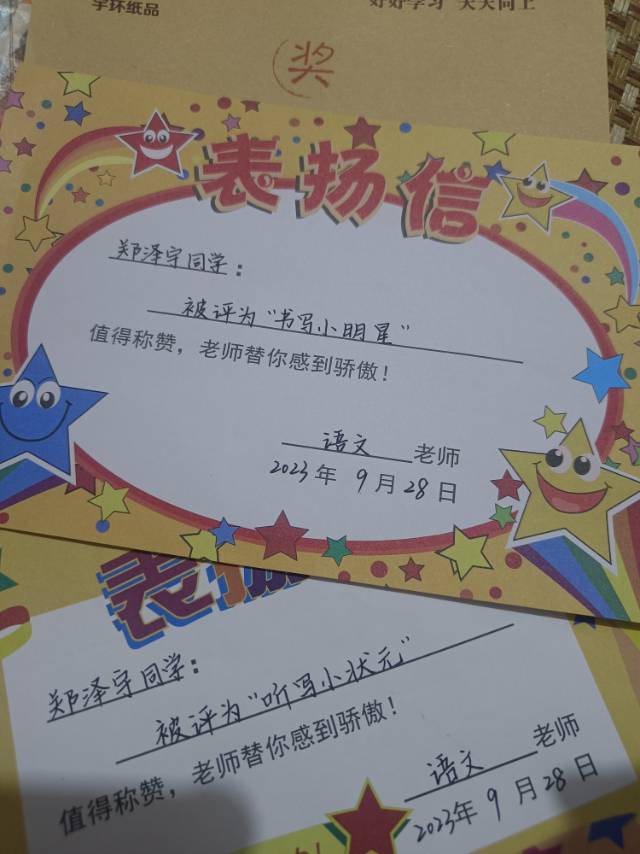 宇环纸品
好好学习 天天向上
奖
表扬信
郑泽宇同学：
被评为“书写小明星”
值得称赞，老师替你感到骄傲！
语文老师
2023年 9月28日
表扬
郑泽宇同学：
被评为“听写小状元”
值得称赞，老师替你感到骄傲！
语文老师
2023年 9月28日